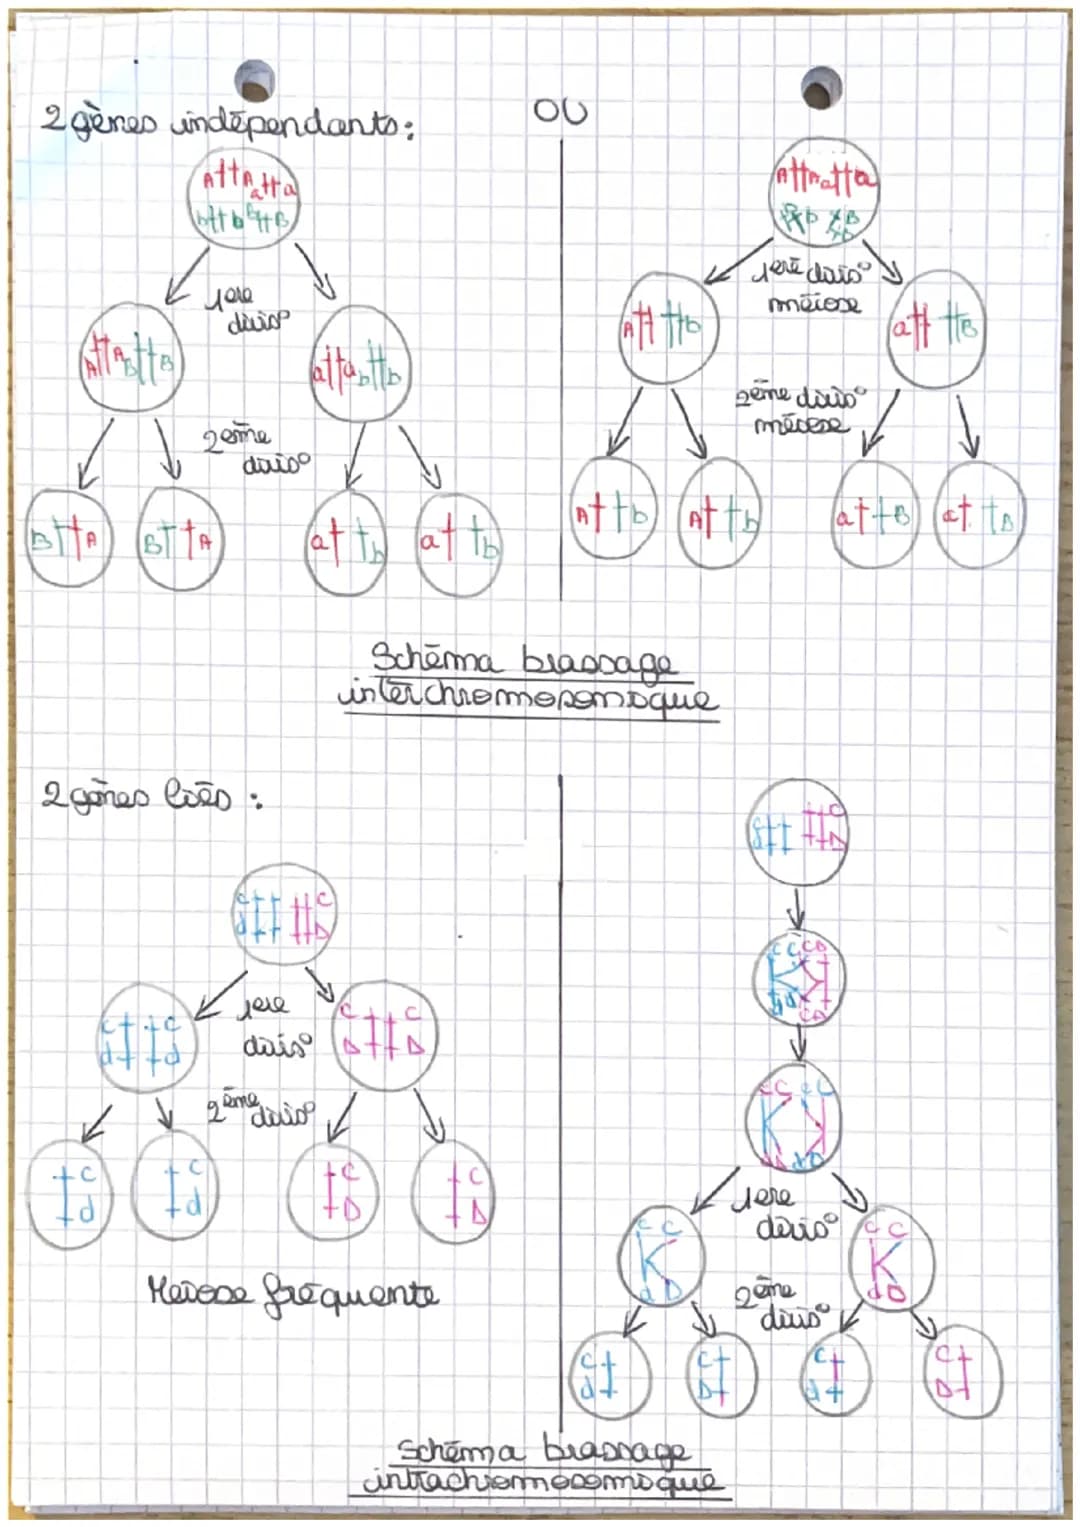 2 gènes indépendants:
OU
A A a a
b b B B
1ere
divis°
A A B B
a a b b
2eme
divis°
B A
B A
a b
a b
A A a a
1ere divis°
méiose
A b
a B
2ème divis°
méiose
A b
A b
a B
a B
Schéma brassage
interchromosomique
2 gènes liés :
c C
d D
1ere
divis°
c c
d d
C C
D D
2ème divis°
c
d
c
d
C
D
C
D
Meiose fréquente
c C
d D
1ere
divis°
c C
d D
C C
d D
2ème
divis°
c
d
c
D
C
d
C
D
Schéma brassage
intrachromosomique